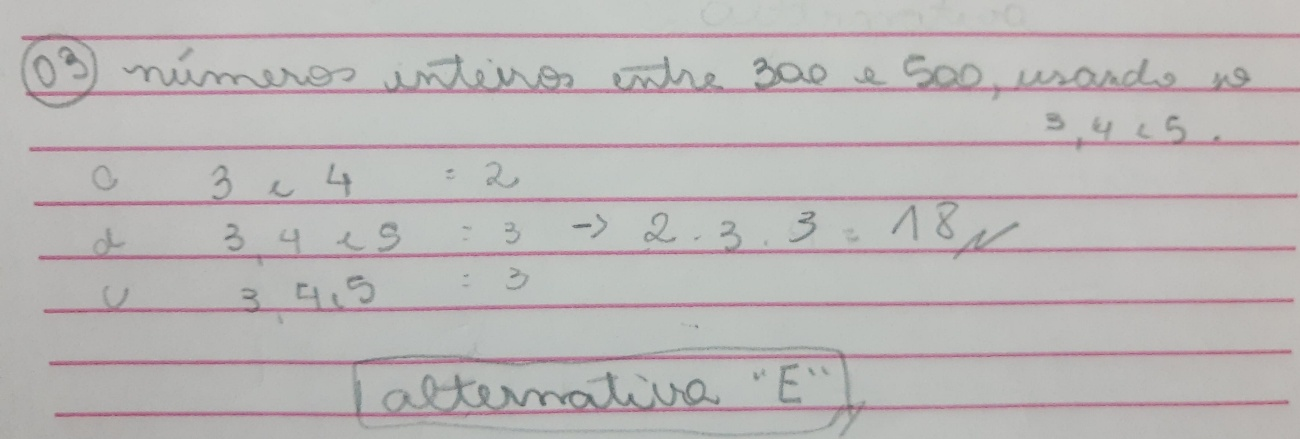 03 números inteiros entre 300 e 500, usando nº
3, 4 e 5.
C 3 e 4 = 2
d 3, 4 e 5 = 3 -> 2 . 3 . 3 = 18
U 3, 4, 5 = 3
alternativa "E"